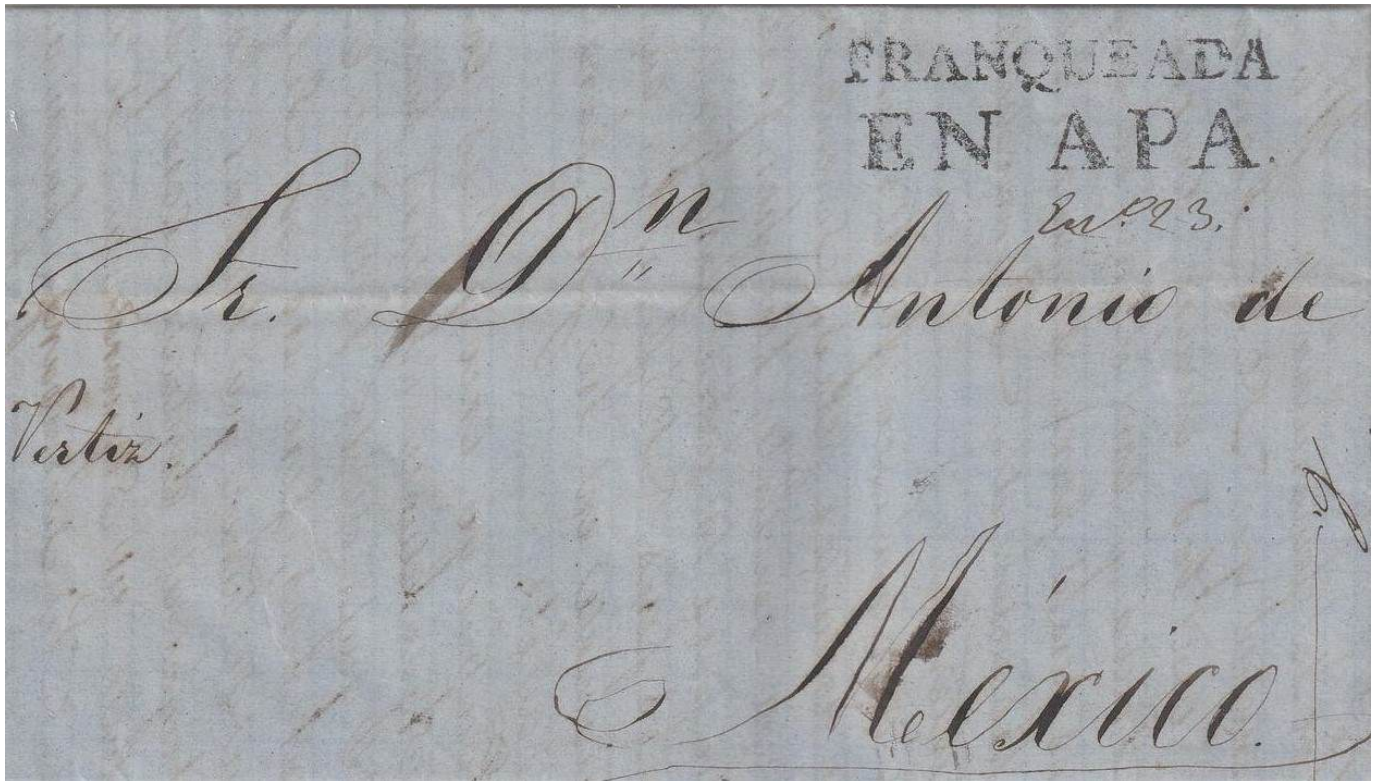 FRANQUEADA
EN APA.
En.º 23.
Sr. Dn Antonio de
Vertiz.
México.